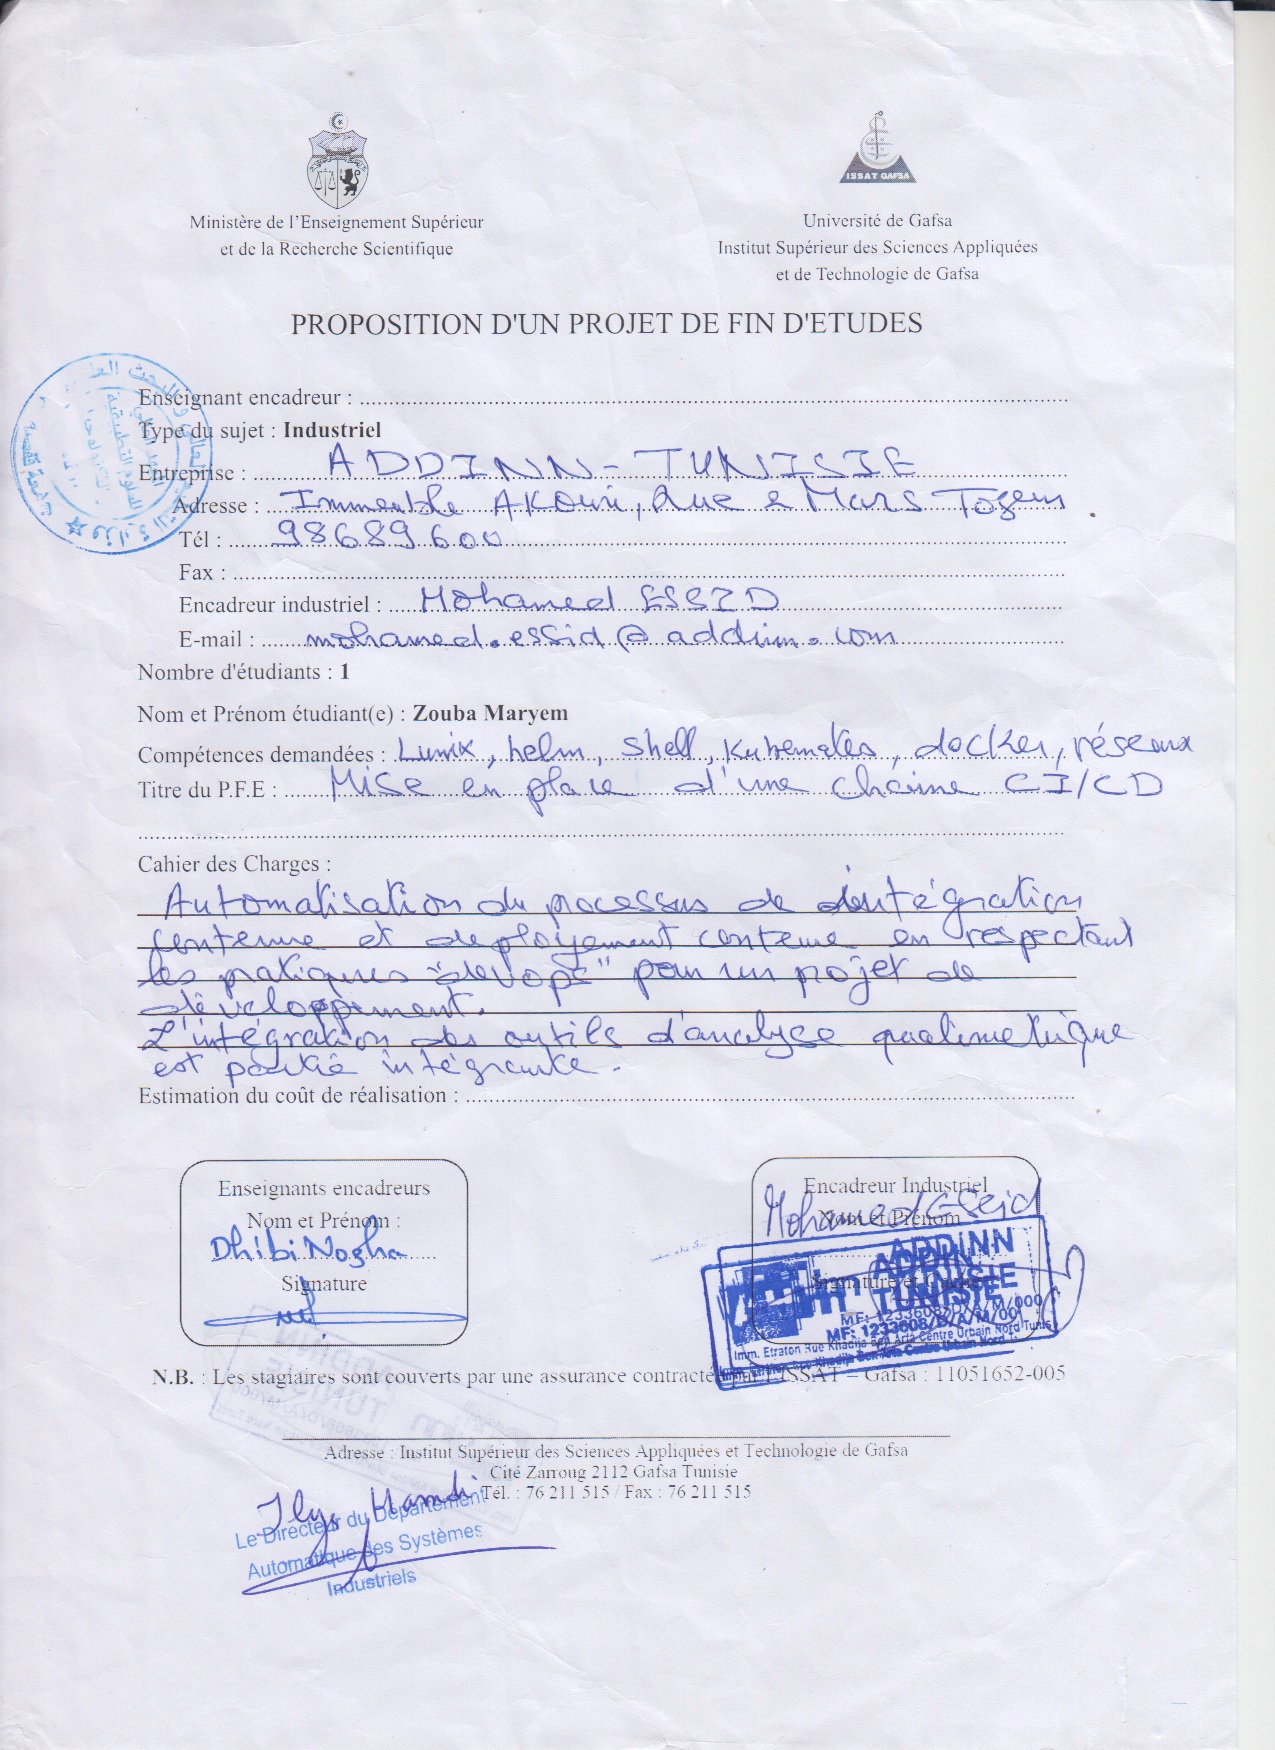 ISSAT GAFSA
Ministère de l'Enseignement Supérieur
et de la Recherche Scientifique
Université de Gafsa
Institut Supérieur des Sciences Appliquées
et de Technologie de Gafsa
PROPOSITION D'UN PROJET DE FIN D'ETUDES
Enseignant encadreur :
Type du sujet : Industriel
Entreprise : ADDINN-TUNISIE
Adresse : Immeuble AKouri, Rue 2 Mars Togeus
Tél : 98689600
Fax :
Encadreur industriel : Mohamed ESSID
E-mail : mohamed.essid@addinn.com
Nombre d'étudiants : 1
Nom et Prénom étudiant(e) : Zouba Maryem
Compétences demandées : Lunix, helm, shell, Kubernates, docker, réseaux
Titre du P.F.E : Mise en place d'une chaine CI/CD
Cahier des Charges :
Automatisation du processus de intégration
contenue et deployement contenue en respectant
les pratiques "devops" pour un projet de
développement.
L'intégration des outils d'analyse qualimetrique
est partie intégrante.
Estimation du coût de réalisation :
Enseignants encadreurs
Nom et Prénom :
Dhibi Nogha
Signature
Encadreur Industriel
Mohamed ESSid
Nom et Prénom
Signature et Cachet
ADDINN
TUNISIE
MF: 1233608/D/A/M/000
Imm. Etraton Rue Khadija Ben Arfa Centre Urbain Nord Tunis
N.B. : Les stagiaires sont couverts par une assurance contractée par l'ISSAT – Gafsa : 11051652-005
Adresse : Institut Supérieur des Sciences Appliquées et Technologie de Gafsa
Cité Zarroug 2112 Gafsa Tunisie
Tél. : 76 211 515 / Fax : 76 211 515
Ilyes Hamdi
Le Directeur du Département
Automatique des Systèmes
Industriels